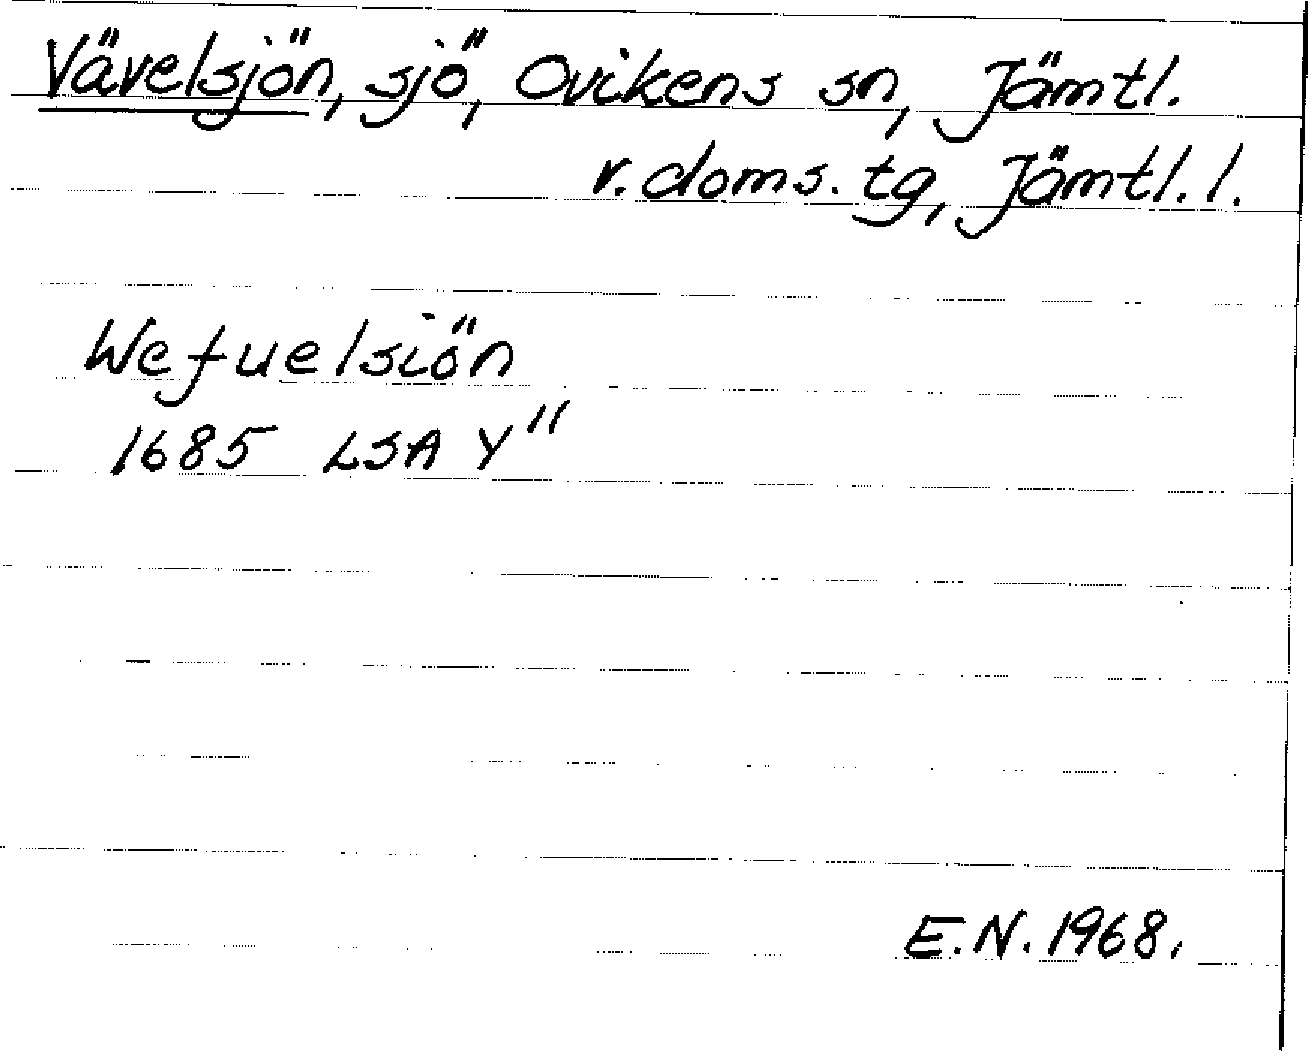 Vävelsjön, sjö, Ovikens sn, Jämtl.
v. doms. tg, Jämtl. l.
Wefuelsiön
1685 LSA Y"
E.N. 1968.